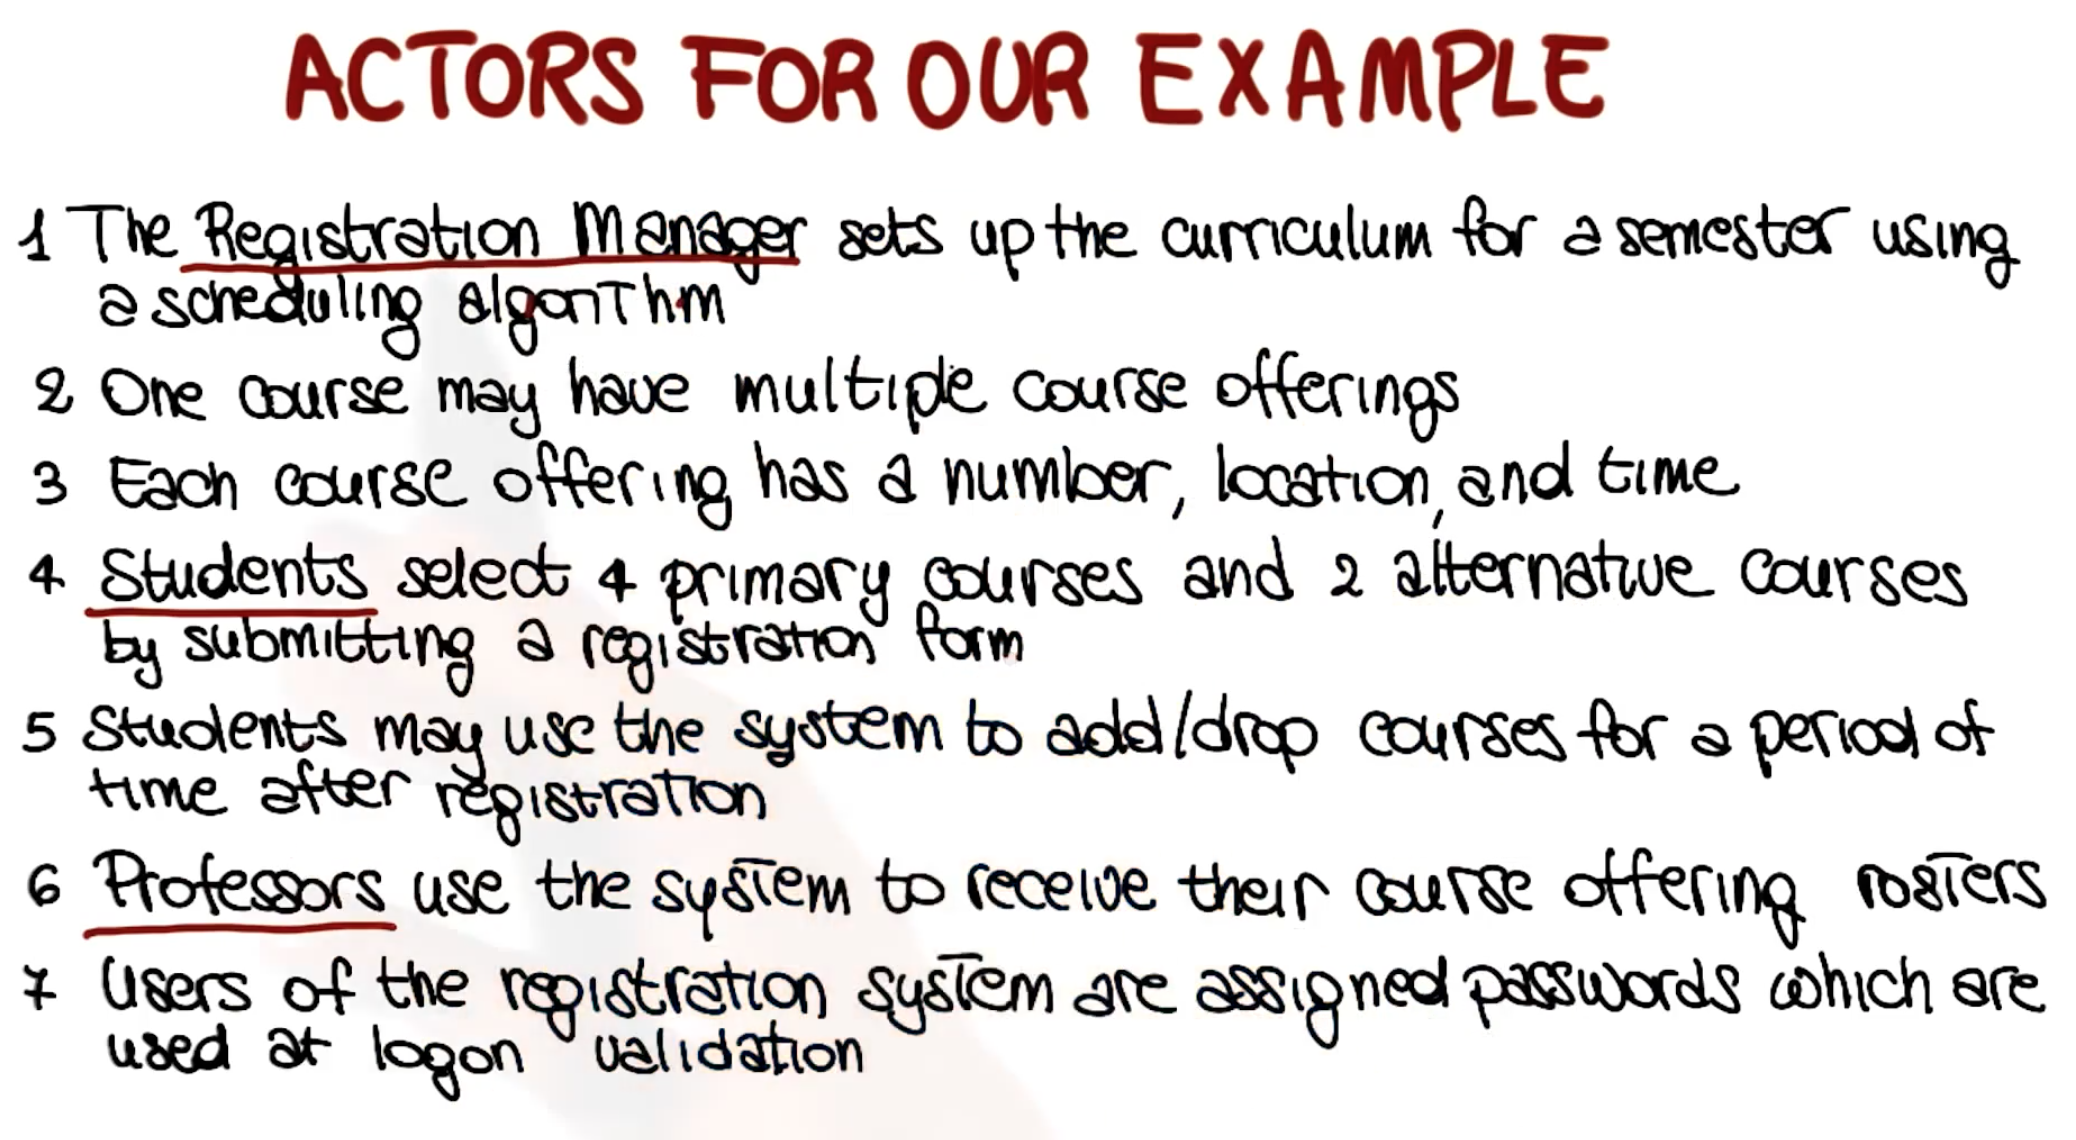 ACTORS FOR OUR EXAMPLE
1 The Registration Manager sets up the curriculum for a semester using
a scheduling algorithm
2 One course may have multiple course offerings
3 Each course offering has a number, location, and time
4 Students select 4 primary courses and 2 alternative courses
by submitting a registration form
5 Students may use the system to add/drop courses for a period of
time after registration
6 Professors use the system to receive their course offering rosters
7 Users of the registration system are assigned passwords which are
used at logon validation